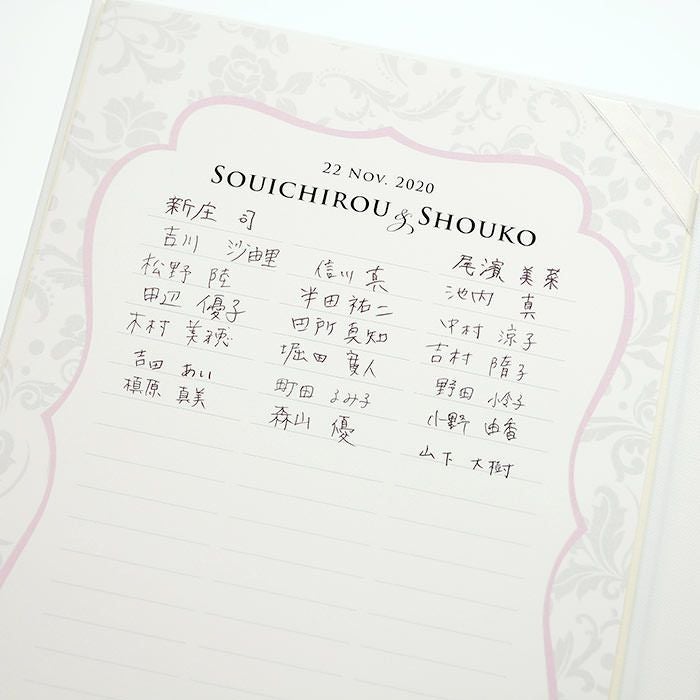 22 NOV. 2020
SOUICHIROU & SHOUKO
新庄 司
吉川 沙由里
松野 陸
田辺 優子
木村 美穂
吉田 あい
槙原 真美
信川 真
半田 祐二
田所 真知
堀田 寛人
町田 よみ子
森山 優
尾濱 美菜
池内 真
中村 涼子
吉村 子
野田 小怜子
小野 由香
山下 大樹